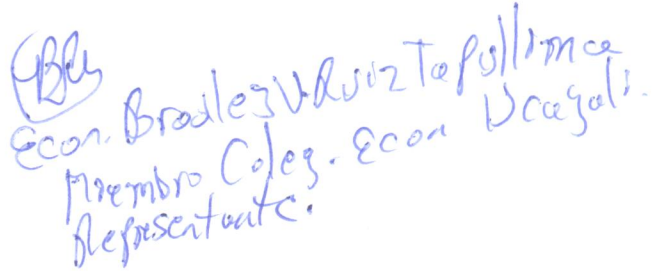 Econ. Bradley V. Ruiz Tapullima
Miembro Coleg. Econ Ucayali.
Representante.